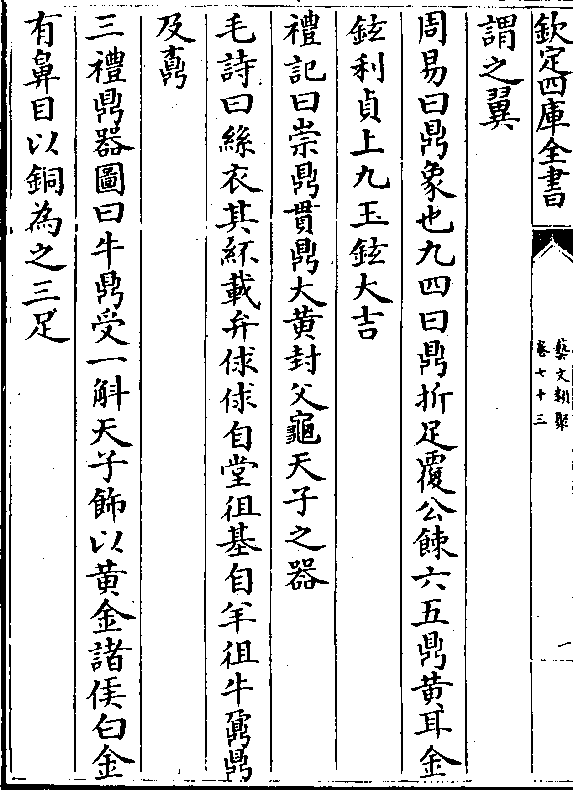 欽定四庫全書
藝文類聚
卷七十三
一
謂之翼
周易曰鼎象也九四曰鼎折足覆公餗六五鼎黃耳金
鉉利貞上九玉鉉大吉
禮記曰崇鼎貫鼎大黃封父龜天子之器
毛詩曰絲衣其紑載弁俅俅自堂徂基自羊徂牛鼐鼎
及鼒
三禮鼎器圖曰牛鼎受一斛天子飾以黃金諸侯白金
有鼻目以銅為之三足